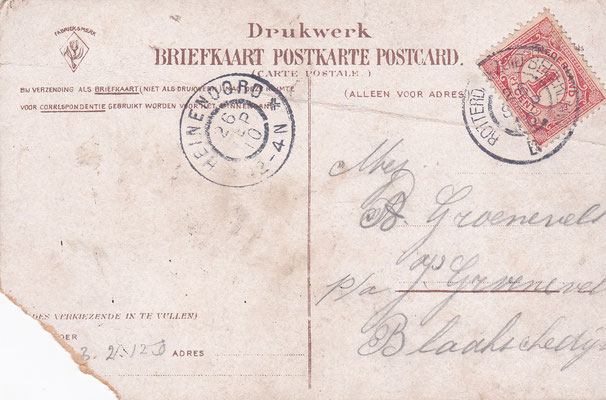 FABRIEKSMERK
Drukwerk
BRIEFKAART POSTKARTE POSTCARD.
(CARTE POSTALE.)
BIJ VERZENDING ALS BRIEFKAART (NIET ALS DRUKWERK) MAG DEZE RUIMTE
VOOR CORRESPONDENTIE GEBRUIKT WORDEN VOOR HET BINNENLAND
(ALLEEN VOOR ADRES)
HEINENOORD
26 SEP 10
2-4N
ROTTERD
NEDERLAND
1
CENT
Mej
A. Groenevelt
p/a Groenevel
Blaakschedij
DES VERKIEZENDE IN TE VULLEN)
DER
ADRES